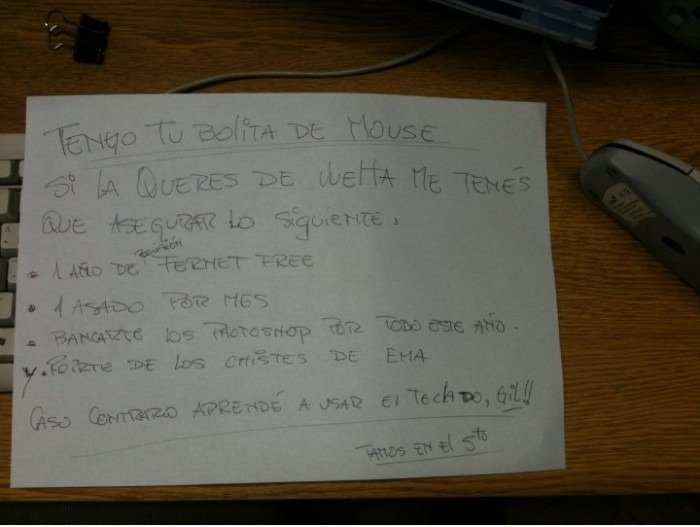 TENGO TU BOLITA DE MOUSE
SI LA QUERES DE VUELTA ME TENÉS
QUE ASEGURAR LO SIGUIENTE:
PROVISIÓN
• 1 AÑO DE FERNET FREE
• 1 ASADO POR MES
• BANCARTE LOS PHOTOSHOP POR TODO ESTE AÑO.
Y • REIRTE DE LOS CHISTES DE EMA
CASO CONTRARIO APRENDÉ A USAR El TECLADO, GIL!!
TAMOS EN El 5to